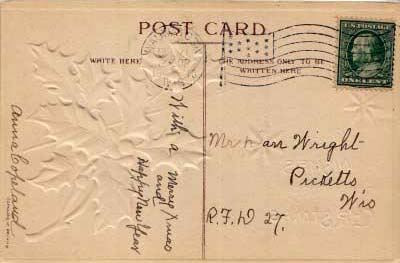 POST CARD.
WRITE HERE
THE ADDRESS ONLY TO BE
WRITTEN HERE
ONE CENT
With a
Merry Xmas
and
Happy New Year
Anna Copeland
Mr Dan Wright
Picketts
Wis
R.F.D 27.